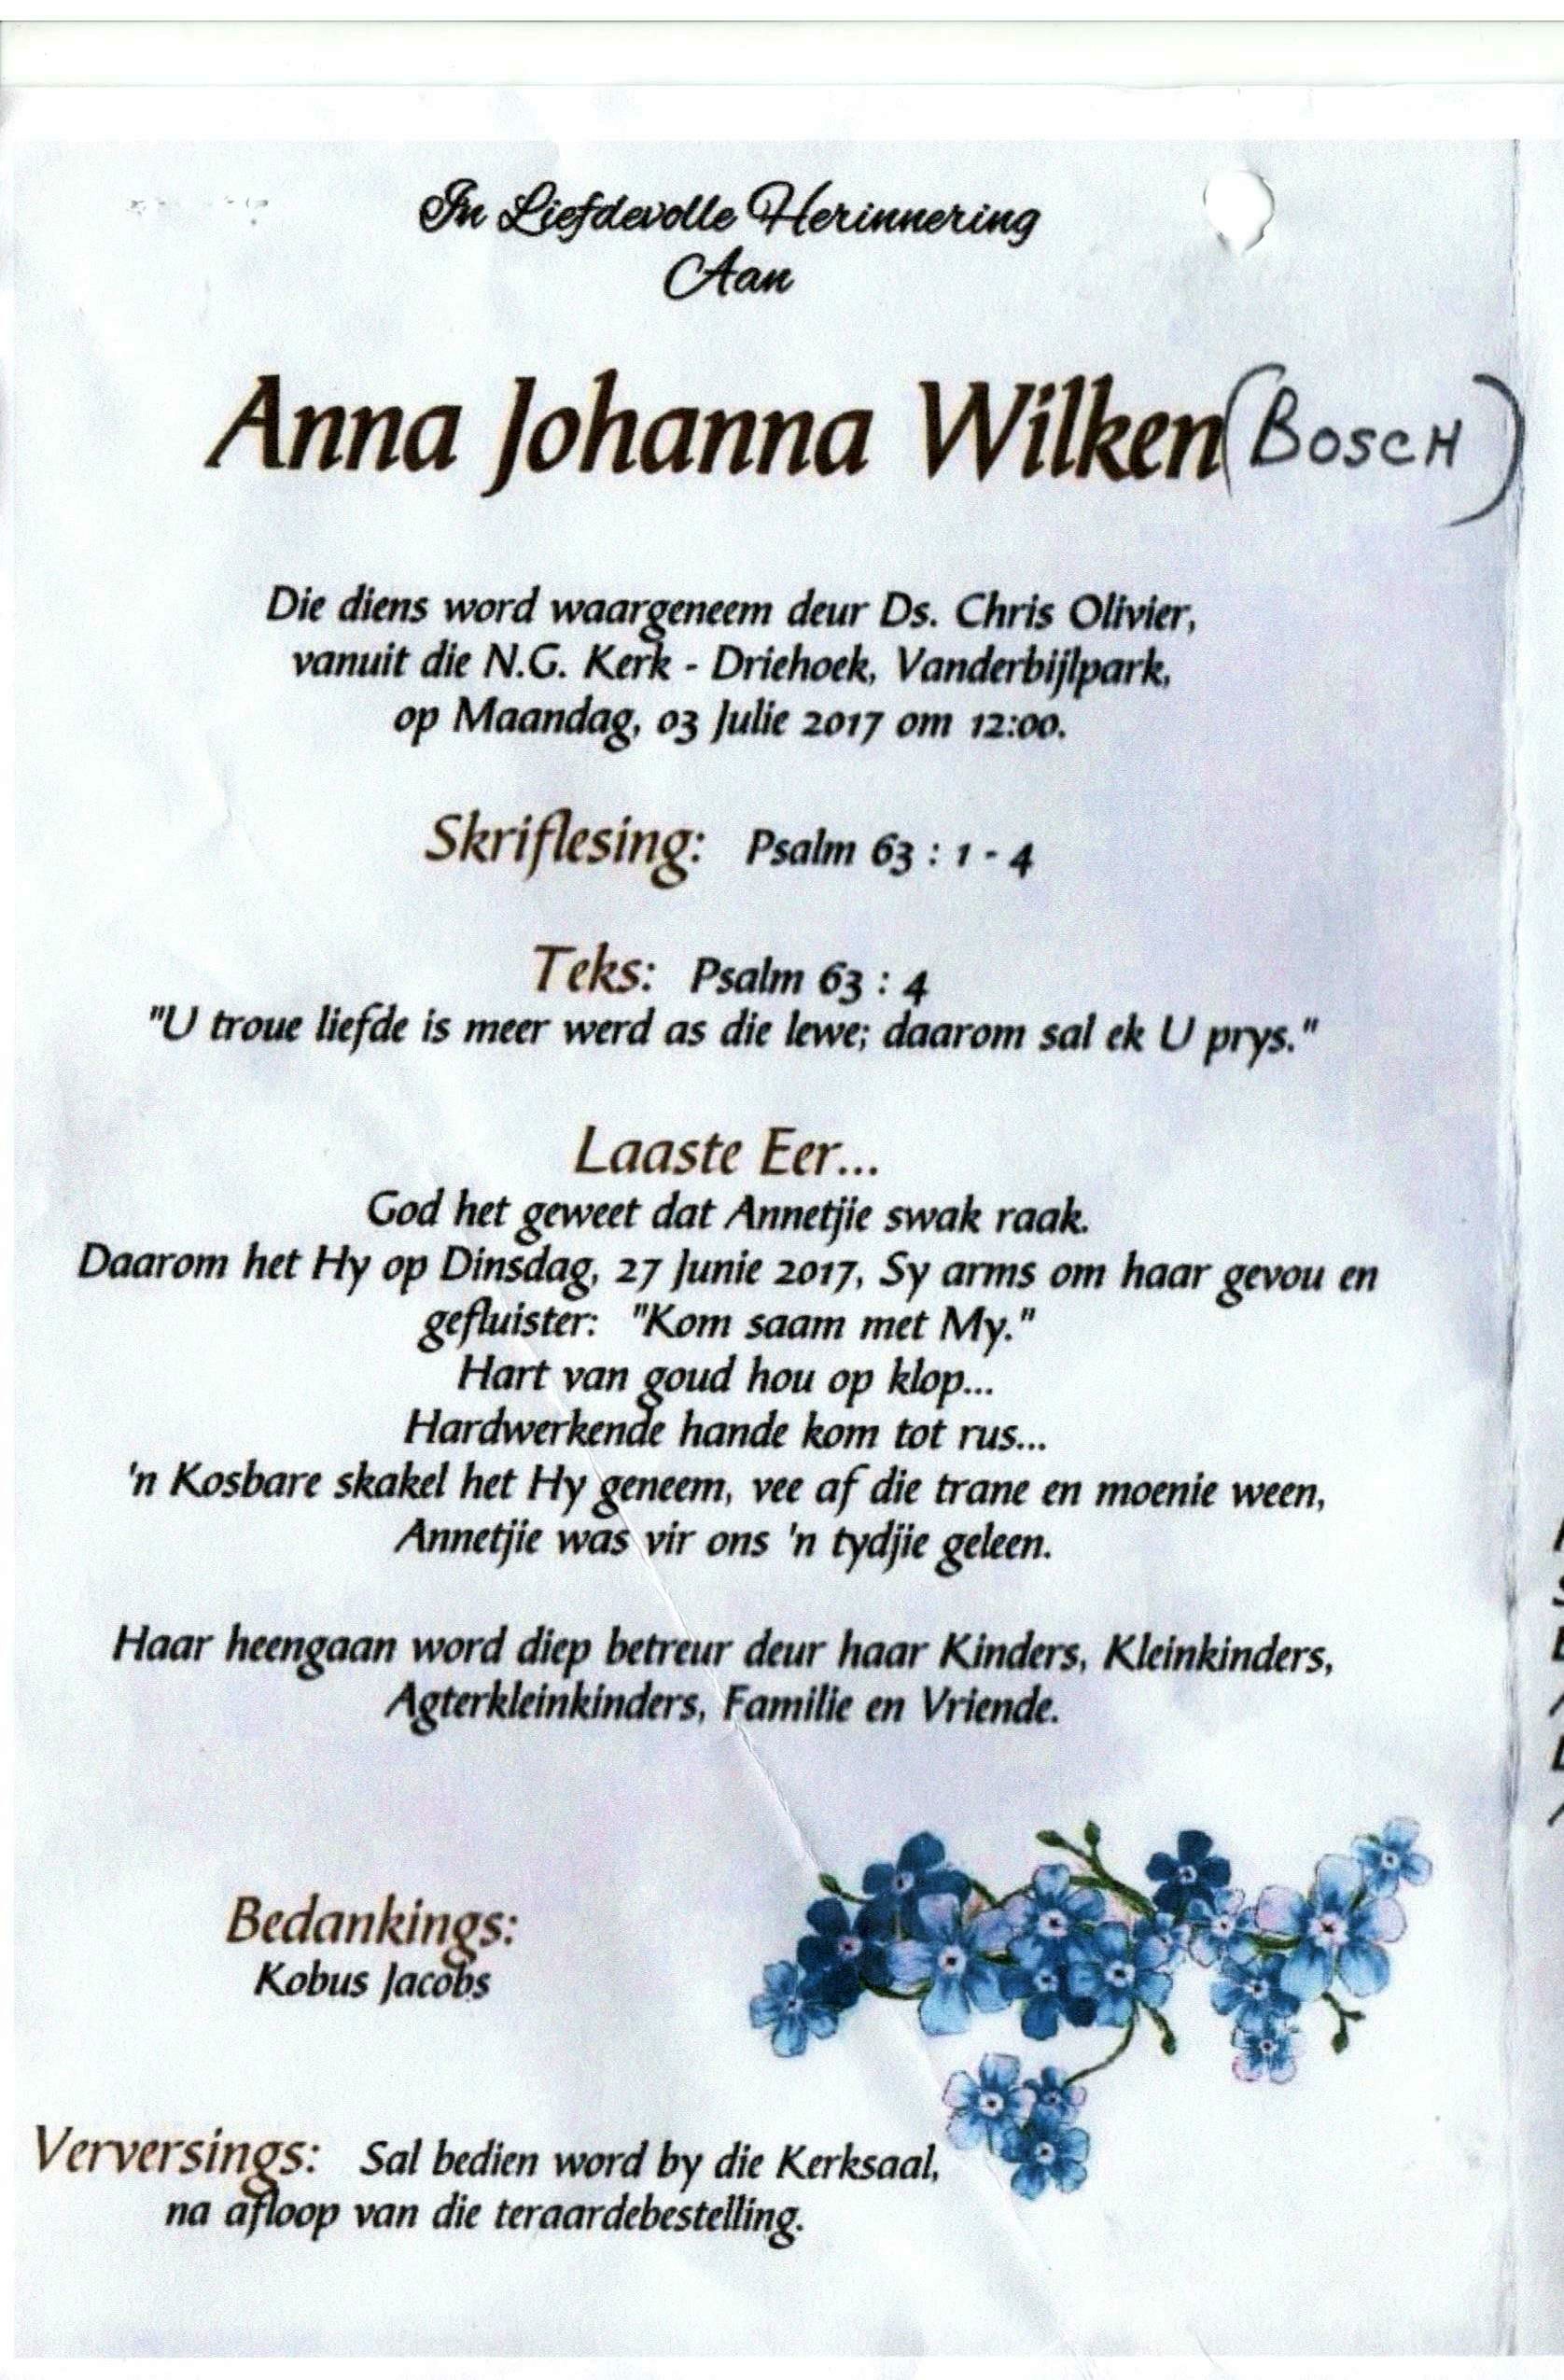 In Liefdevolle Herinnering
Aan
Anna Johanna Wilken (BOSCH)
Die diens word waargeneem deur Ds. Chris Olivier,
vanuit die N.G. Kerk - Driehoek, Vanderbijlpark,
op Maandag, 03 Julie 2017 om 12:00.
Skriflesing: Psalm 63 : 1 - 4
Teks: Psalm 63 : 4
"U troue liefde is meer werd as die lewe; daarom sal ek U prys."
Laaste Eer...
God het geweet dat Annetjie swak raak.
Daarom het Hy op Dinsdag, 27 Junie 2017, Sy arms om haar gevou en
gefluister: "Kom saam met My."
Hart van goud hou op klop...
Hardwerkende hande kom tot rus...
'n Kosbare skakel het Hy geneem, vee af die trane en moenie ween,
Annetjie was vir ons 'n tydjie geleen.
Haar heengaan word diep betreur deur haar Kinders, Kleinkinders,
Agterkleinkinders, Familie en Vriende.
Bedankings:
Kobus Jacobs
Verversings: Sal bedien word by die Kerksaal,
na afloop van die teraardebestelling.